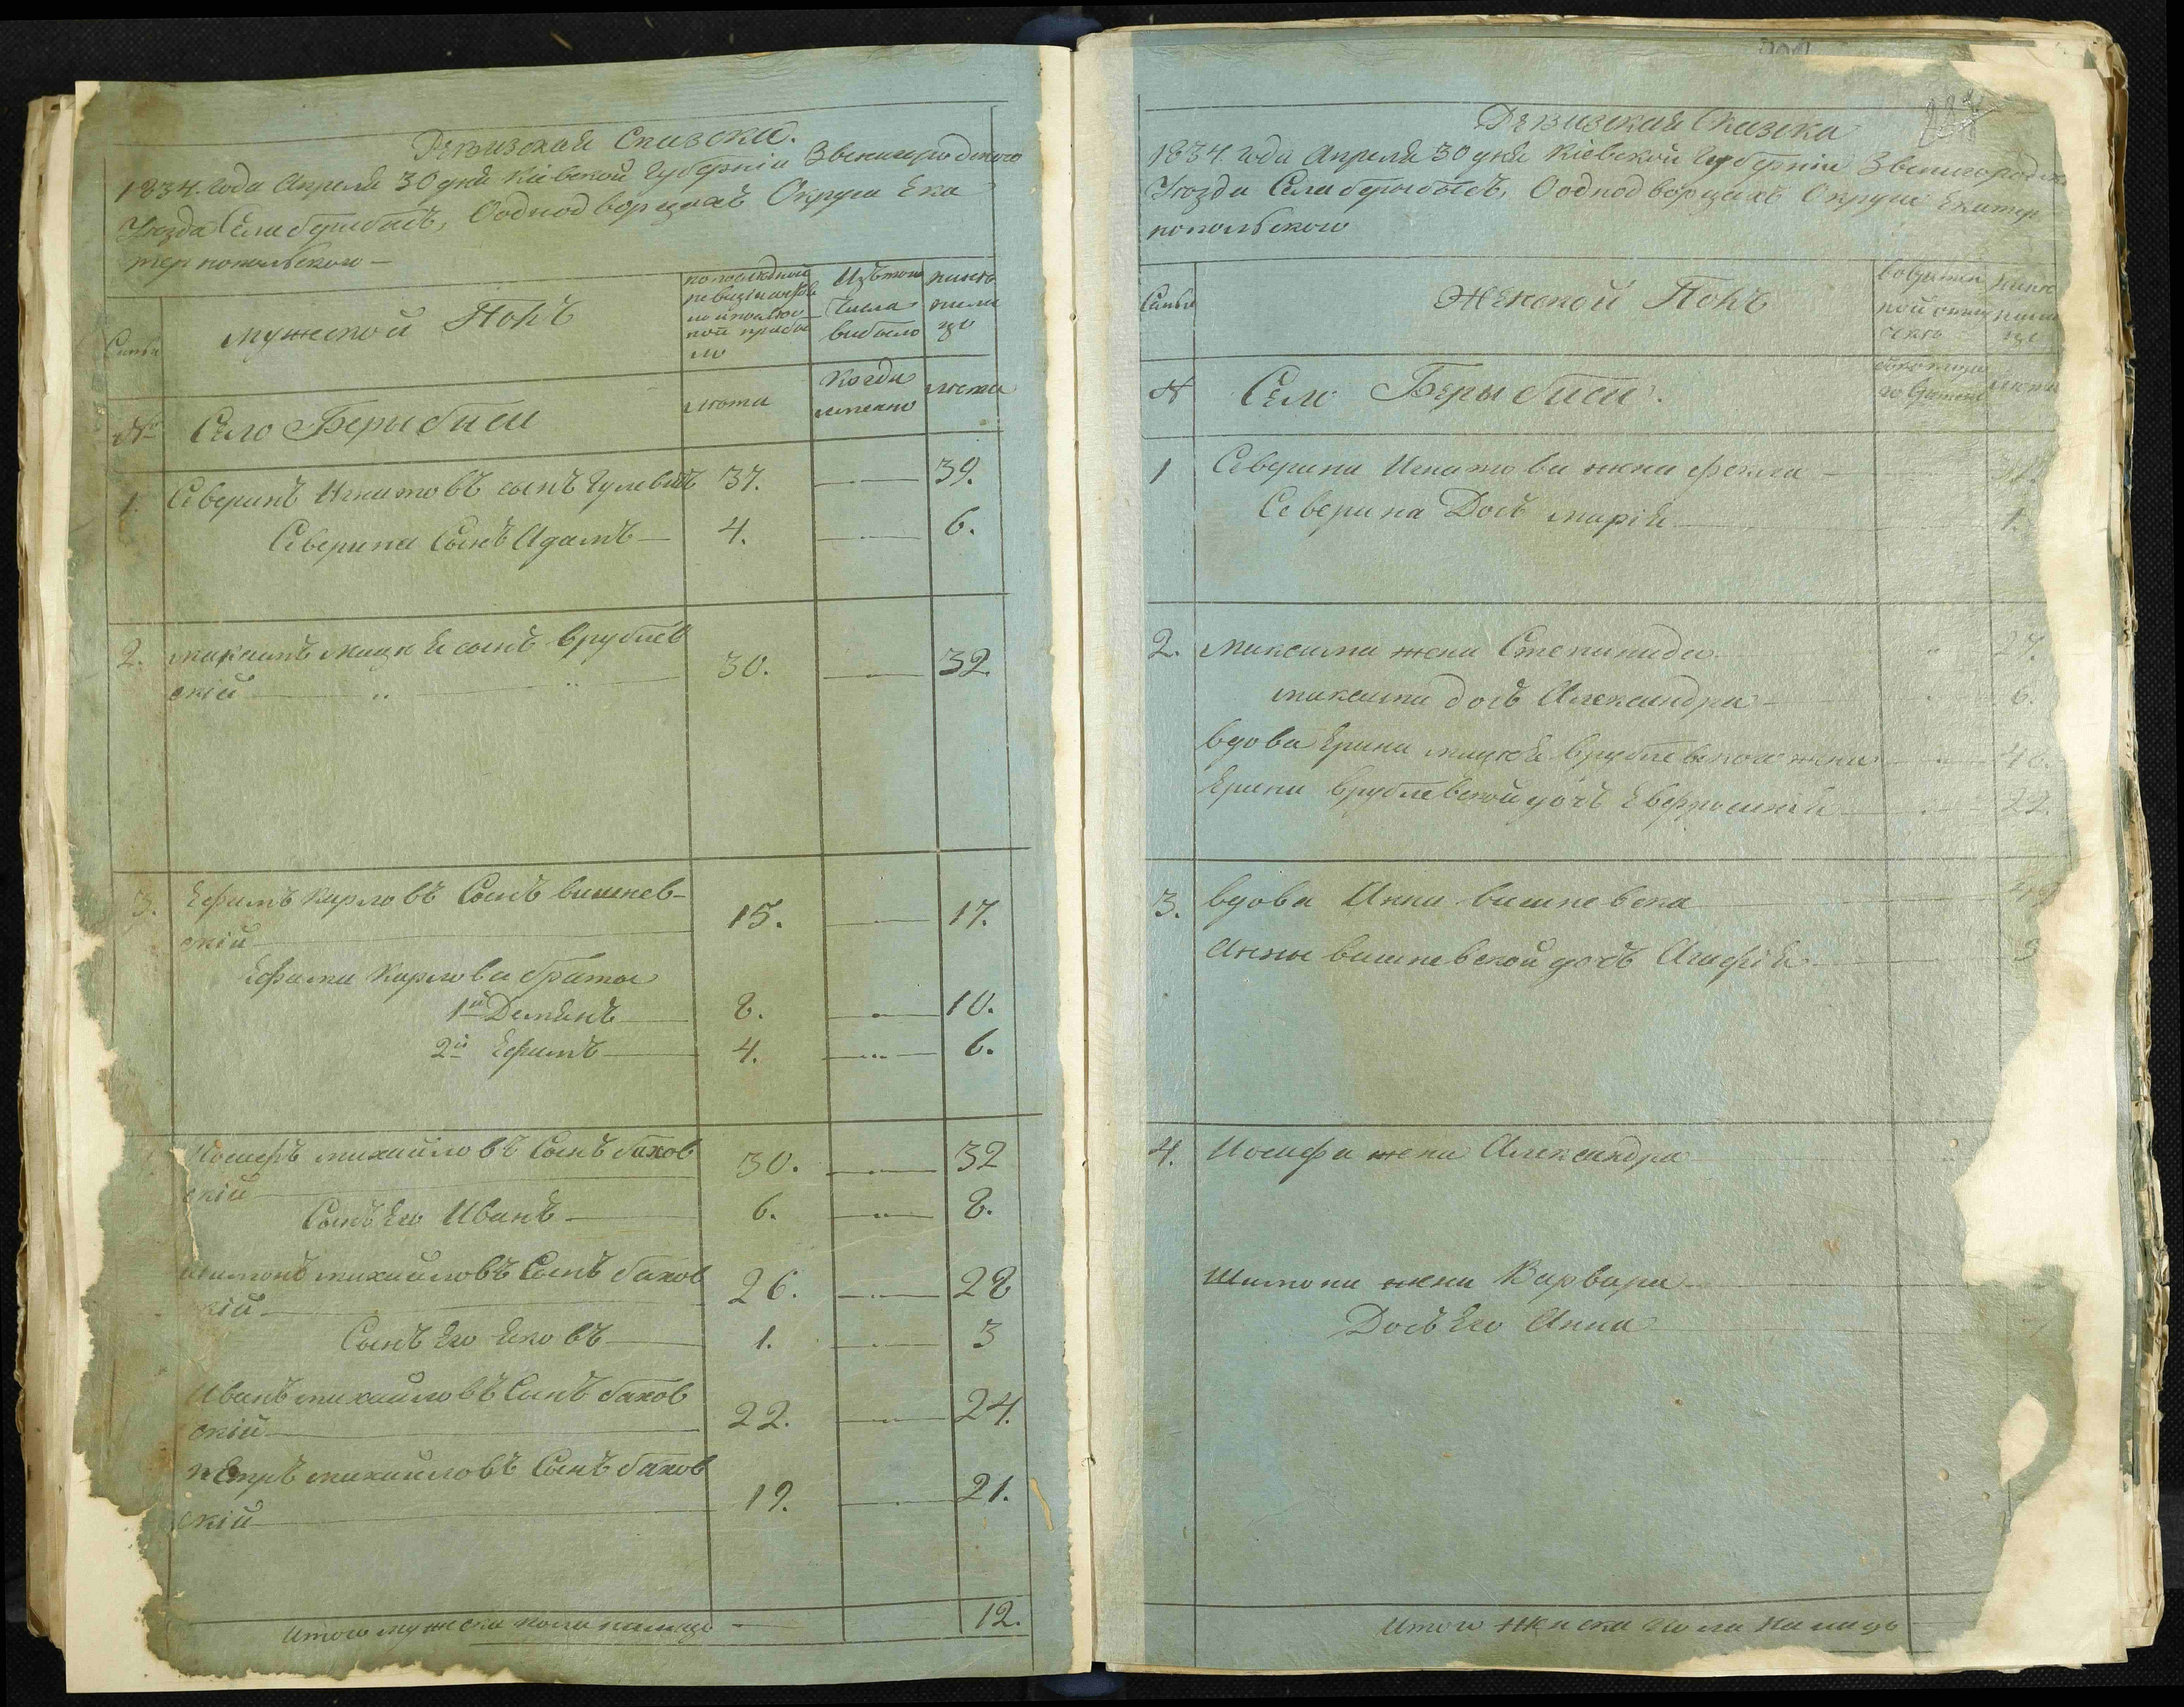 Ревизская Сказска.
1834. года Апреля 30 дня Кіевской Губерніи Звенигородского
Уезда Села берыбысъ, Ооднодворцахъ Округи Ека
теринопольского —
Семья
Мужеской Полъ
по последней
ревизіи
Изътого
числа
выбыло
ныне
нали
цо
№
Село Берыбиси
лета
когда
имянно
лета
1. Северинъ Игнатовъ сынъ Гулевичъ 37. — 39.
Северина Сынъ Адамъ — 4. — 6.
2. Максимъ мацкея сынъ врублев
скій 30. — 32.
3. Ефимъ Карловъ Сынъ вишнев-
скій 15. — 17.
Ефима Карлова браты
1й Демянъ 8. — 10.
2й Ефимъ 4. — 6.
Иосифъ михайловъ Сынъ баков
скій 30. — 32
Сынъ Его Иванъ 6. — 8.
Шимонъ михайловъ Сынъ баков
скій 26. — 28
Сынъ Его Яковъ 1. — 3
Иванъ михайловъ Сынъ баков
скій 22. — 24.
Петръ михайловъ Сынъ баков
скій 19. — 21.
Итого мужеска пола налицо — 12.
Ревизская Сказска
1834. года Апреля 30 дня Кіевской Губерніи Звенигородск
Уезда Села берыбысъ, Ооднодворцахъ Округи Екатер
нопольского
Семья
Женской Полъ
ныне
нали
цо
№ Село Берыбиси.
лета
1 Северина Игнатова жена Фекла —
Северина Дочъ марія 1.
2. Максима жена Степанида 27.
максима дочъ Александра 6.
вдова Ерина мацкея врублевского жена
Ерины врублевской дочъ Евфросинія 22.
3. вдова Анна вишневска
Анны вишневской дочъ Агафія
4. Иосифа жена Александра
Шимона жена Варвара
Дочъ Его Анна
Итого женска пола налицо